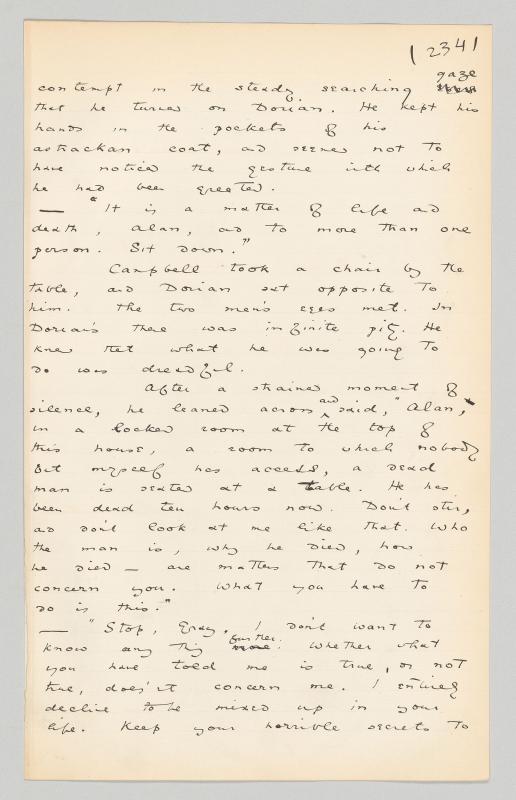 (234)
gaze
contempt in the steady searching
that he turned on Dorian. He kept his
hands in the pockets of his
astrackan coat, and seemed not to
have noticed the gesture with which
he had been greeted.
— "It is a matter of life and
death, Alan, and to more than one
person. Sit down."
Campbell took a chair by the
table, and Dorian sat opposite to
him. The two men's eyes met. In
Dorian's there was infinite pity. He
knew that what he was going to
do was dreadful.
After a strained moment of
silence, he leaned across and said, "Alan,
in a locked room at the top of
this house, a room to which nobody
but myself has access, a dead
man is seated at a table. He has
been dead ten hours now. Don't stir,
and don't look at me like that. Who
the man is, why he died, how
he died — are matters that do not
concern you. What you have to
do is this."
— "Stop, Gray. I don't want to
know any thing further. Whether what
you have told me is true, or not
true, does'nt concern me. I entirely
decline to be mixed up in your
life. Keep your horrible secrets to